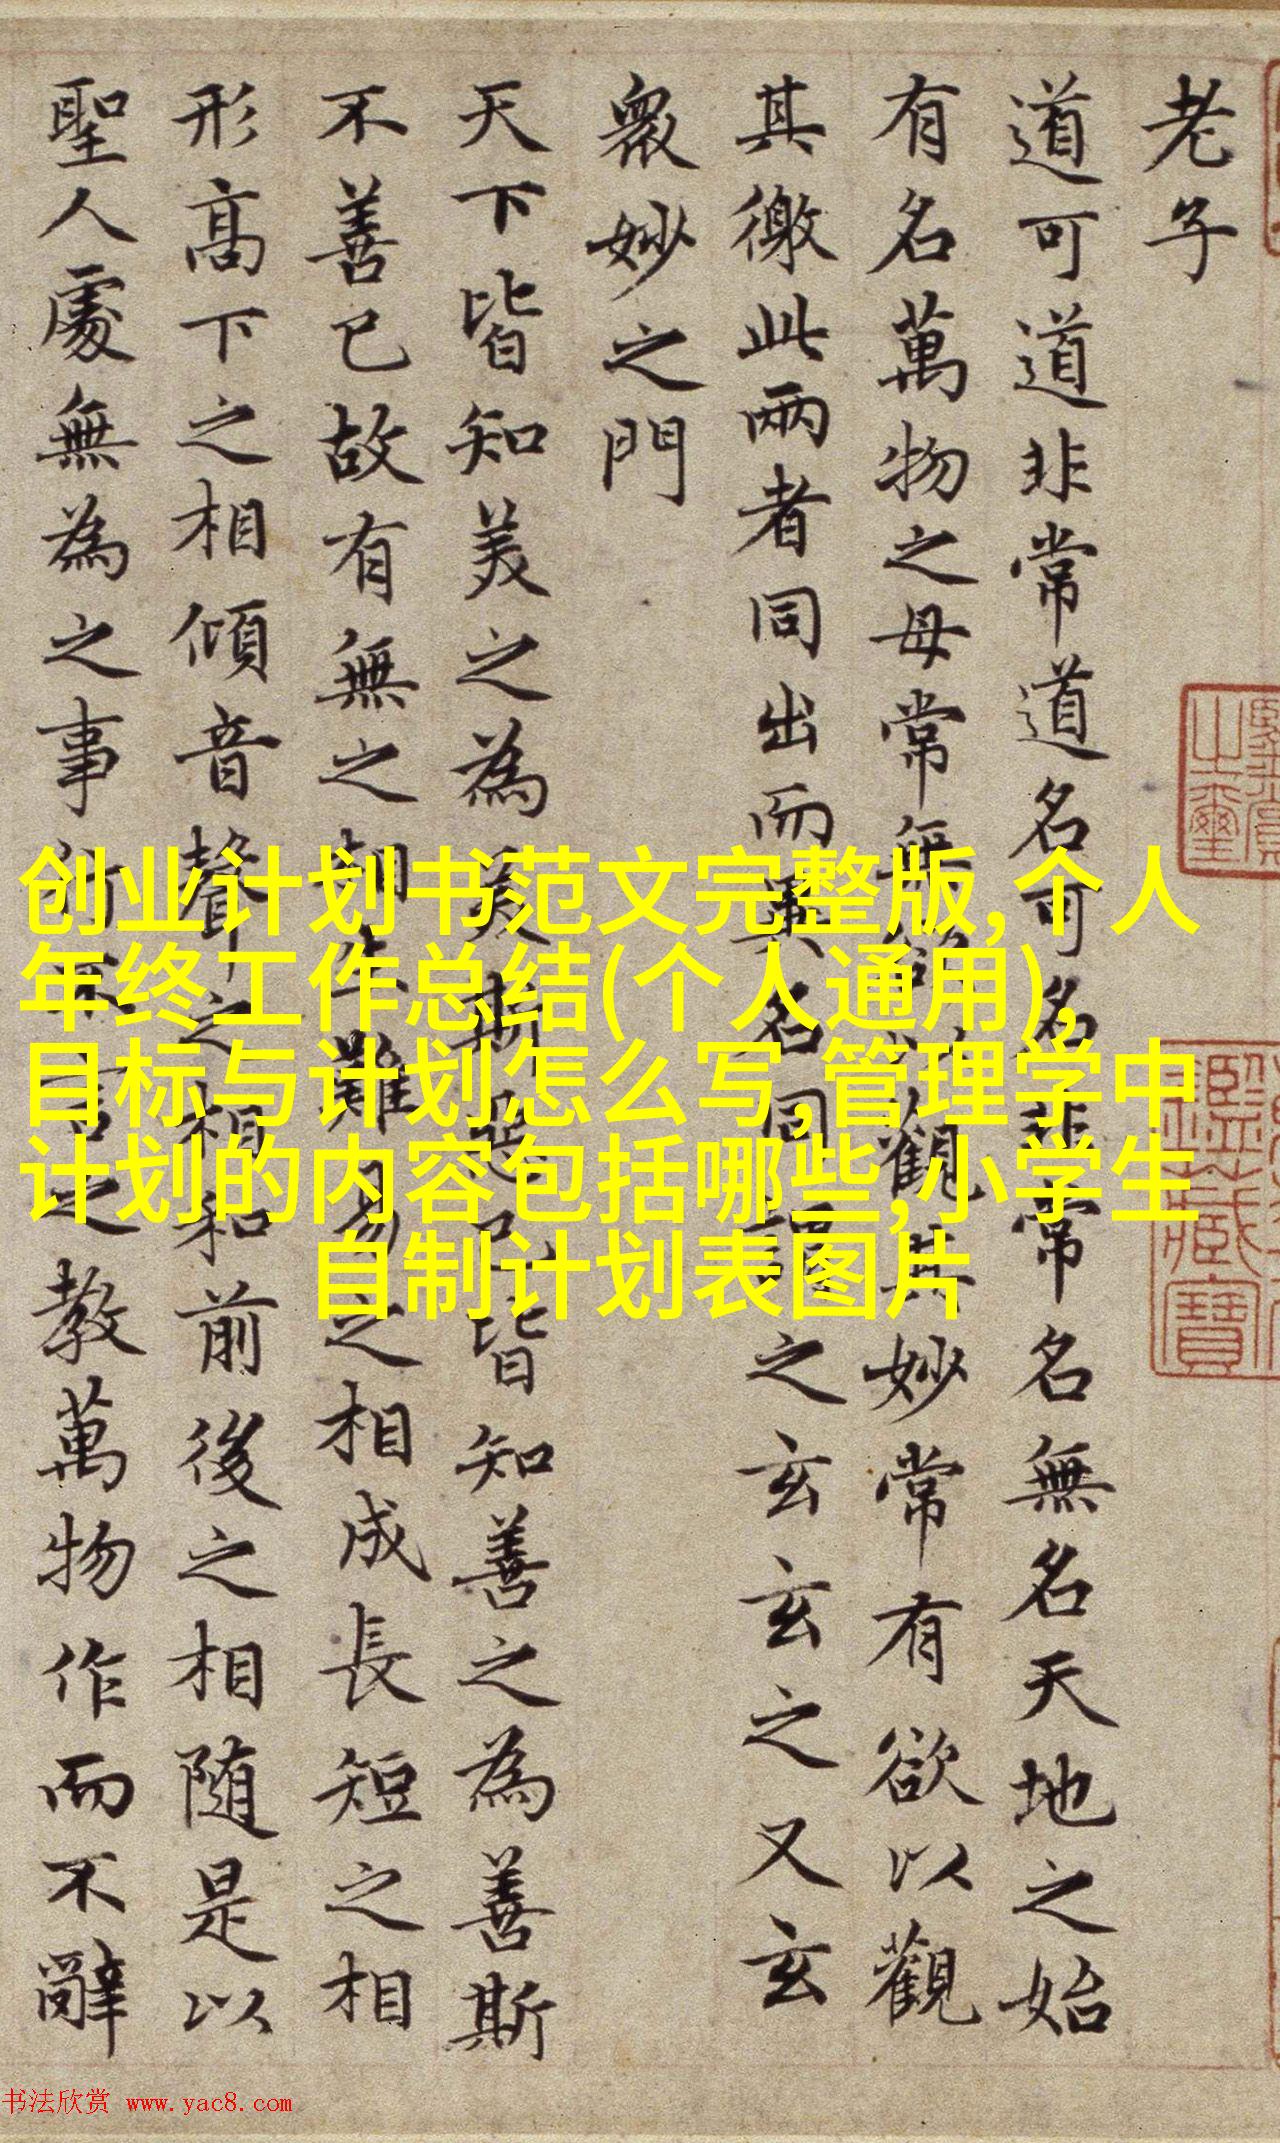 老子
道可道非常道名可名非常名無名天地之始
有名萬物之母常無欲以觀其妙常有欲以觀
其徼此兩者同出而異名同謂之玄玄之又玄
衆妙之門
天下皆知美之為美斯惡已皆知善之為善斯
不善已故有無之相生難易之相成長短之相
形高下之相傾音聲之相和前後之相随是以
聖人處無為之事行不言之教萬物作而不辭
创业计划书范文完整版,个人
年终工作总结(个人通用),
目标与计划怎么写,管理学中
计划的内容包括哪些,小学生
自制计划表图片
之璽
鑑藏寶
书法欣赏 www.yac8.com